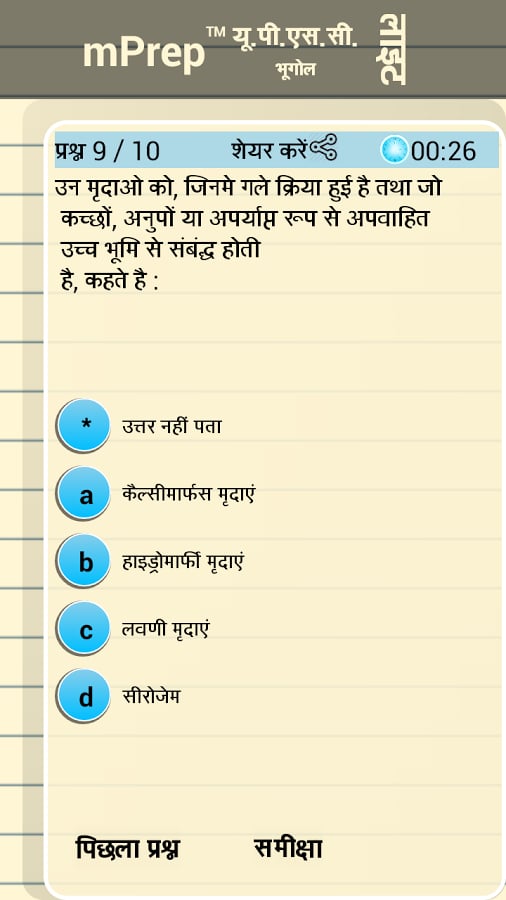 mPrep™ यू.पी.एस.सी.
भूगोल
लाइट
प्रश्न 9 / 10 शेयर करें 00:26
उन मृदाओ को, जिनमे गले क्रिया हुई है तथा जो
कच्छों, अनुपों या अपर्याप्त रूप से अपवाहित
उच्च भूमि से संबंद्ध होती
है, कहते है :
* उत्तर नहीं पता
a कैल्सीमार्फस मृदाएं
b हाइड्रोमार्फी मृदाएं
c लवणी मृदाएं
d सीरोजेम
पिछला प्रश्न समीक्षा